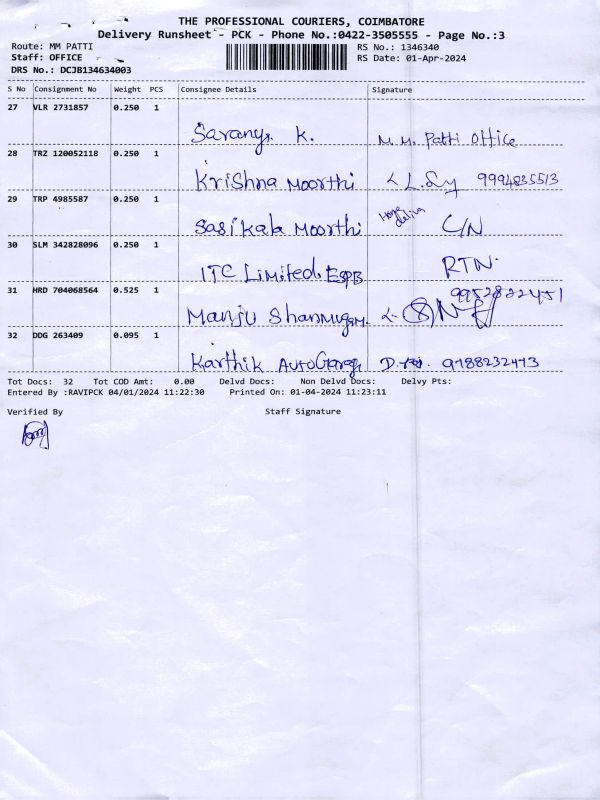 THE PROFESSIONAL COURIERS, COIMBATORE
Delivery Runsheet - PCK - Phone No.:0422-3505555 - Page No.:3
Route: MM PATTI RS No.: 1346340
Staff: OFFICE RS Date: 01-Apr-2024
DRS No.: DCJB134634003
S No Consignment No Weight PCS Consignee Details Signature
27 VLR 2731857 0.250 1
Saranya K. M.M. Patti Office
28 TRZ 120052118 0.250 1
Krishna Moorthi 9994835513
29 TRP 4985587 0.250 1
Sasikala Moorthi Home C/N
30 SLM 342828096 0.250 1
ITC Limited. ESPB RTN.
31 HRD 704068564 0.525 1
9952822451
Manju Shanmugam.
32 DDG 263409 0.095 1
Karthik AutoGarag 9788232473
Tot Docs: 32 Tot COD Amt: 0.00 Delvd Docs: Non Delvd Docs: Delvy Pts:
Entered By :RAVIPCK 04/01/2024 11:22:30 Printed On: 01-04-2024 11:23:11
Verified By Staff Signature